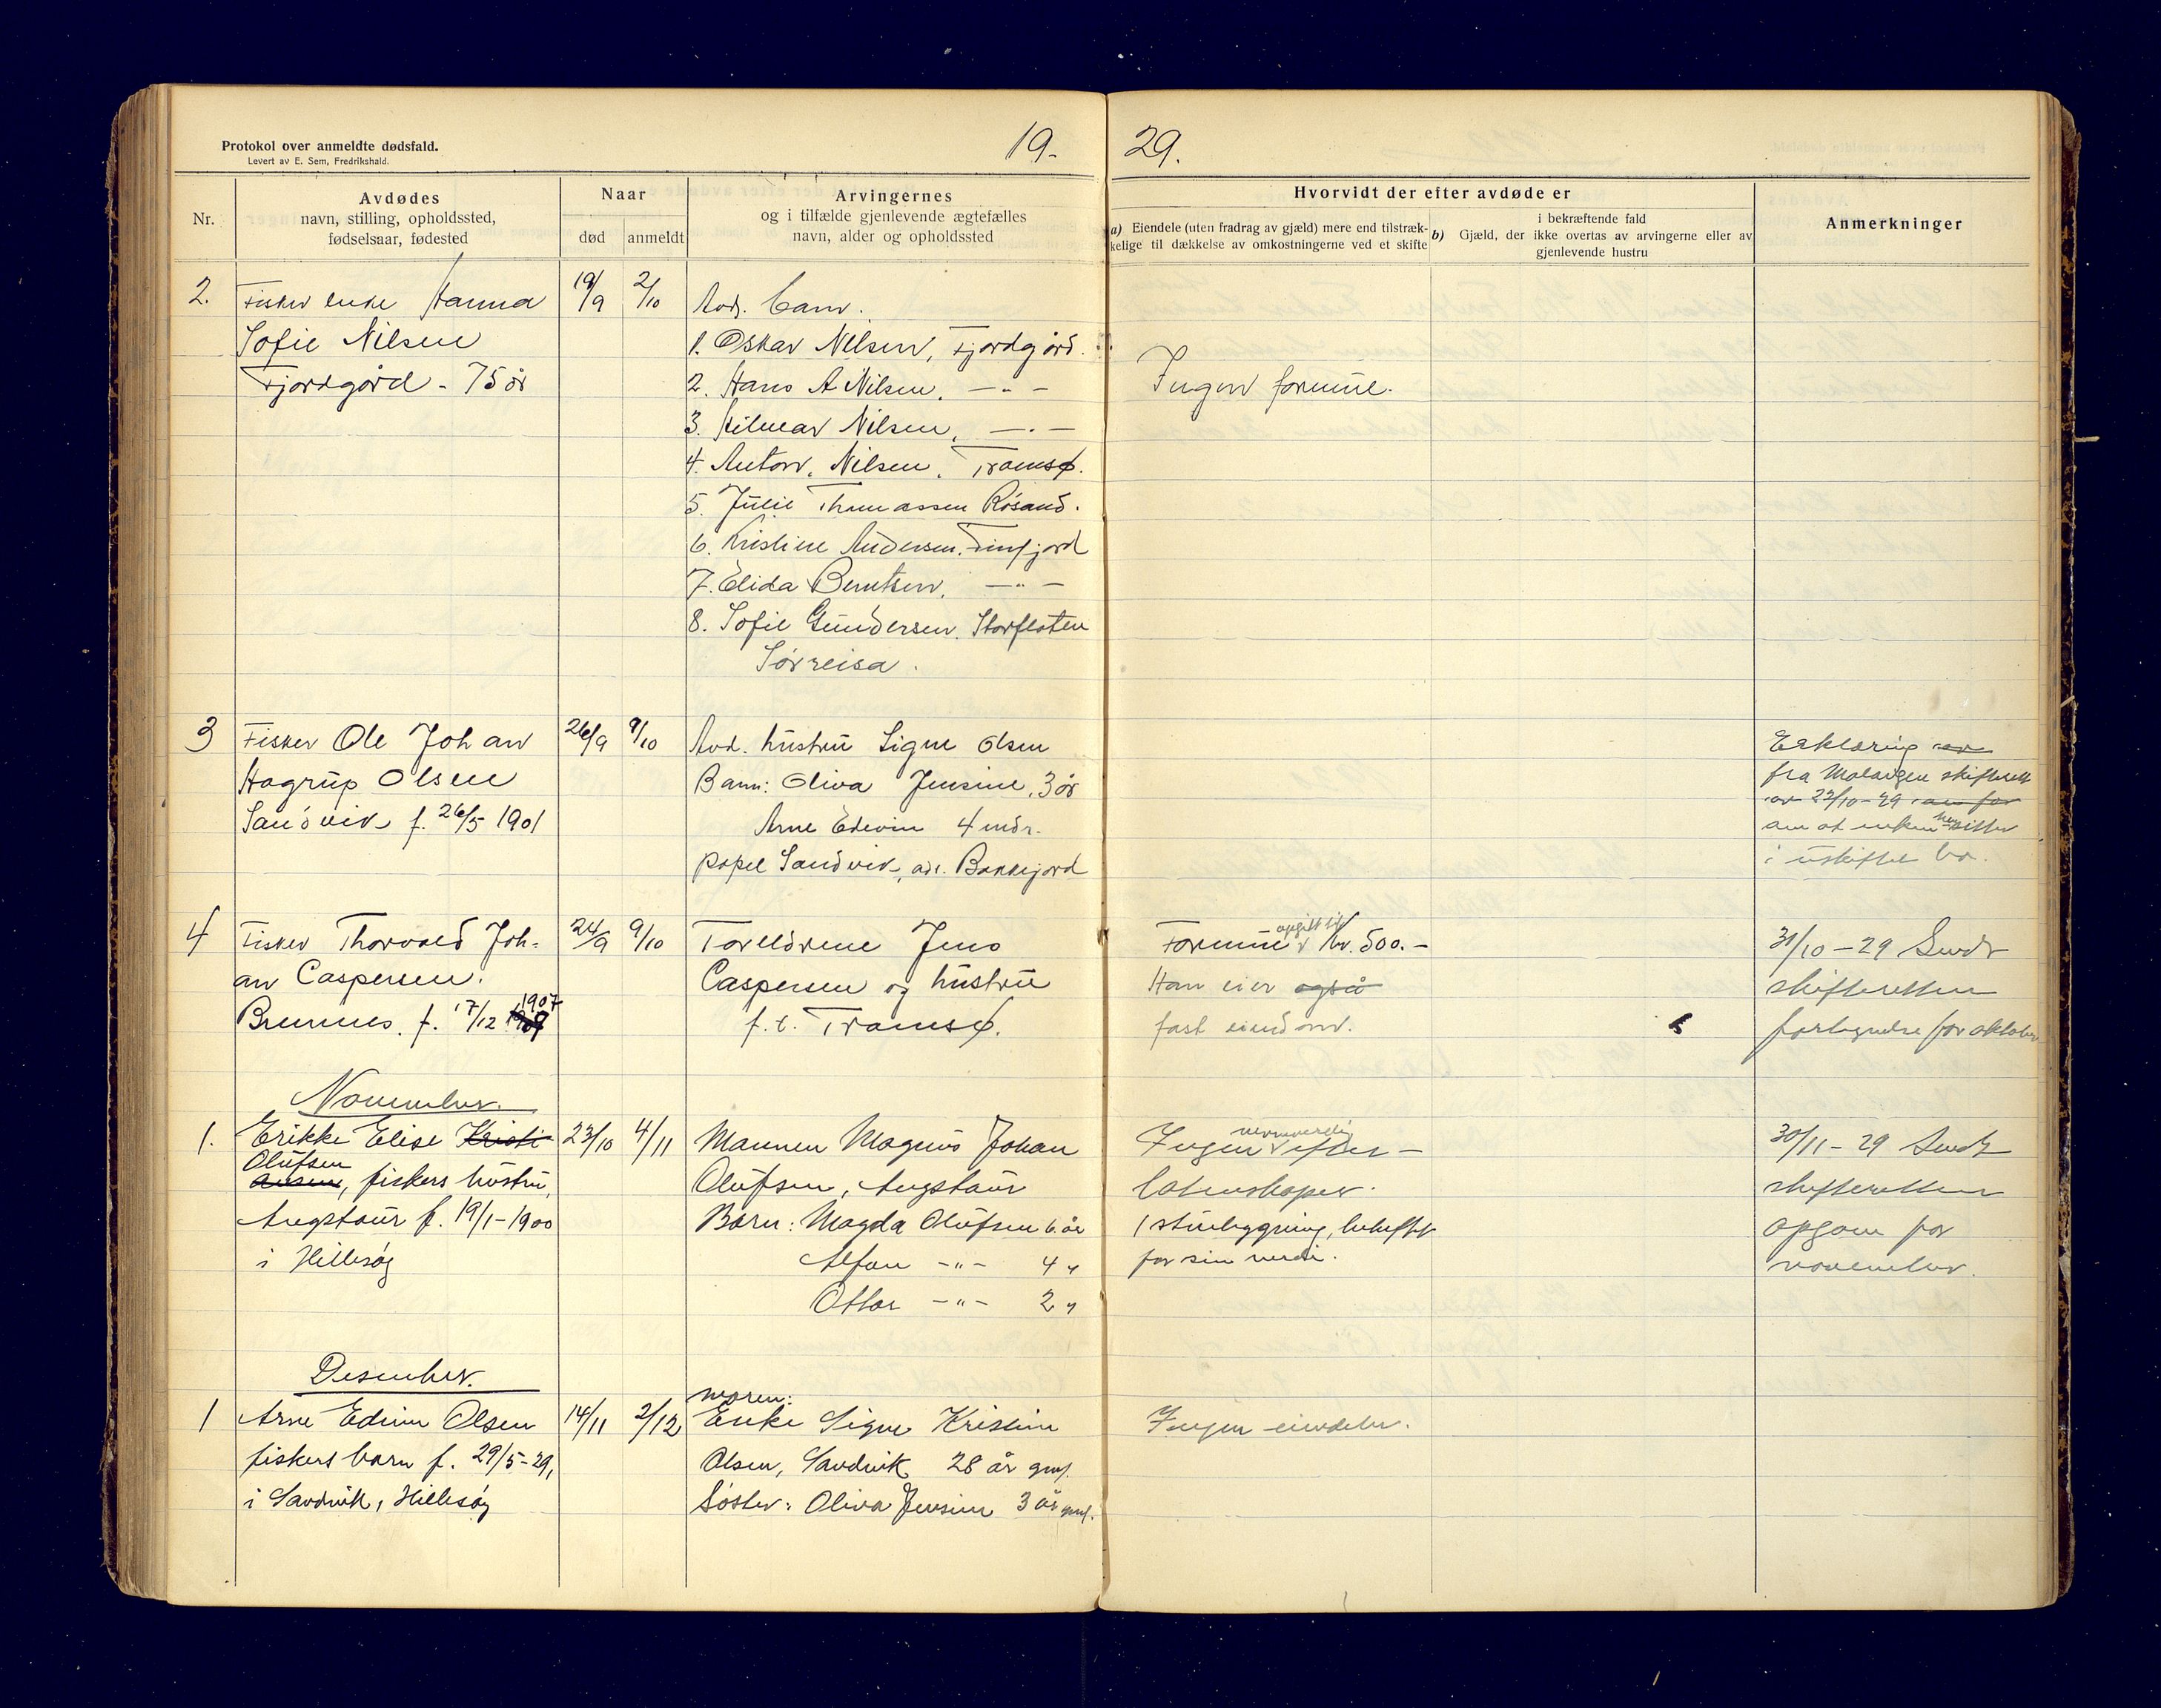 Protokol over anmeldte dødsfald.
Levert av E. Sem, Fredrikshald.
19-
29.
Nr.
Avdødes
navn, stilling, opholdssted,
fødselsaar, fødested
Naar
død
anmeldt
Arvingernes
og i tilfælde gjenlevende ægtefælles
navn, alder og opholdssted
Hvorvidt der efter avdøde er
a) Eiendele (uten fradrag av gjæld) mere end tilstræk-
kelige til dækkelse av omkostningerne ved et skifte
i bekræftende fald
b) Gjæld, der ikke overtas av arvingerne eller av
gjenlevende hustru
Anmerkninger
2. Fisker enke Hanna 19/9 2/10 Avd. barn.
Sofie Nilsen 1. Oskar Nilsen, Fjordgård.
Fjordgård - 75 år 2. Hans A Nilsen. -"- Ingen formue.
3. Hilmar Nilsen, -"-
4. Anton. Nilsen. Tromsø.
5. Julie Thomassen Rósand.
6. Kristine Andersen. Finfjord
7. Elida Berntsen. -"-
8. Sofie Gundersen. Storfloten
Sørreisa.
3 Fisker Ole Johan 26/9 9/10 Avd. hustru Signe Olsen Erklæring av
Hagrup Olsen Barn: Oliva Jensine, 3 år fra Malangen skifterett
Sandvik f. 26/5 1901 Arne Edevin 4 mdr. av 22/10-29 om for
om at enken hensitter
popel Sandvik, adr. Bakkejord i uskiftet bo.
4 Fisker Thorvald Joh- 24/9 9/10 Foreldrene Jens Formue opgitt til Kr. 500.- 31/10-29 Sendt
an Caspersen. Caspersen og hustru Han eier også skifteretten
Brennes. f. 17/12 1907 f. t. Tromsø. fast eiendom. fortegnelse for oktober
November.
1. Erikke Elise Kristi- 23/10 4/11 Mannen Magnus Johan Ingen nevneverdig efter- 30/11-29 Sendt
Olufsen
ansen, fiskers hustru, Olufsen, Angstaur latenskaper. skifteretten
Angstaur f. 19/1-1900 Barn: Magda Olufsen 6 år 1 stuebygning, beheftet opgave for
i Hillesøy Alfon -"- 4 " for sin verdi. november.
Ottar -"- 2 "
Desember.
moren:
1 Arne Edvin Olsen 14/11 2/12 Enke Signe Kristine Ingen eiendeler.
fiskers barn f. 29/5-29, Olsen, Sandvik 28 år gml.
i Sandvik, Hillesøy Søster: Oliva Jensine 3 år gml.